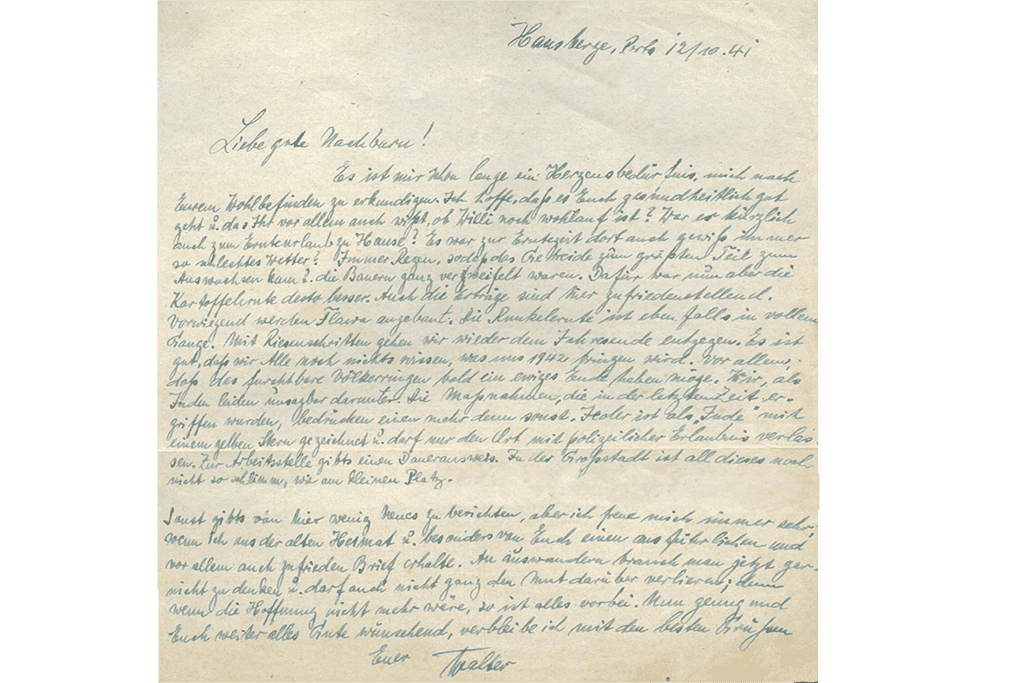 Hausberge, Porta 12/10.41
Liebe gute Nachbarn!
Es ist mir schon lange ein Herzensbedürfnis, mich nach
Eurem Wohlbefinden zu erkundigen. Ich hoffe, daß es Euch gesundheitlich gut
geht u. das Ihr vor allem auch wißt, ob Willi noch wohlauf ist? War er kürzlich
auch zum Ernteurlaub zu Hause? Es war zur Erntezeit dort auch gewiß immer
so schlechtes Wetter? Immer Regen, sodaß das Getreide zum größten Teil zum
Auswachsen kam u. die Bauern ganz verzweifelt waren. Dafür war nun aber die
Kartoffelernte desto besser. Auch die Erträge sind hier zufriedenstellend.
Vorwiegend werden Flava angebaut. Die Runkelernte ist eben falls in vollem
Gange. Mit Riesenschritten gehen wir wieder dem Jahresende entgegen. Es ist
gut, daß wir Alle noch nichts wissen, was uns 1942 bringen wird. Vor allem,
daß das furchtbare Völkerringen bald ein ewiges Ende haben möge. Wir, als
Juden leiden unsagbar darunter. Die Maßnahmen, die in der letzten Zeit er-
griffen wurden, bedrücken einen mehr denn sonst. Jeder ist als „Jude" mit
einem gelben Stern gezeichnet u. darf nur den Ort mit polizeilicher Erlaubnis verlas-
sen. Zur Arbeitsstelle gibts einen Dauerausweis. In der Großstadt ist all dieses noch
nicht so schlimm, wie am kleinen Platz.
Sonst gibts von hier wenig Neues zu berichten, aber ich freue mich immer sehr,
wenn ich aus der alten Heimat u. besonders von Euch einen ausführlichen und
vor allem auch zufrieden Brief erhalte. An auswandern brauch man jetzt gar-
nicht zu denken u. darf auch nicht ganz den Mut darüber verlieren; denn
wenn die Hoffnung nicht mehr wäre, so ist alles vorbei. Nun genug und
Euch weiter alles Gute wünschend, verbleibe ich mit den besten Grüßen
Euer Walter